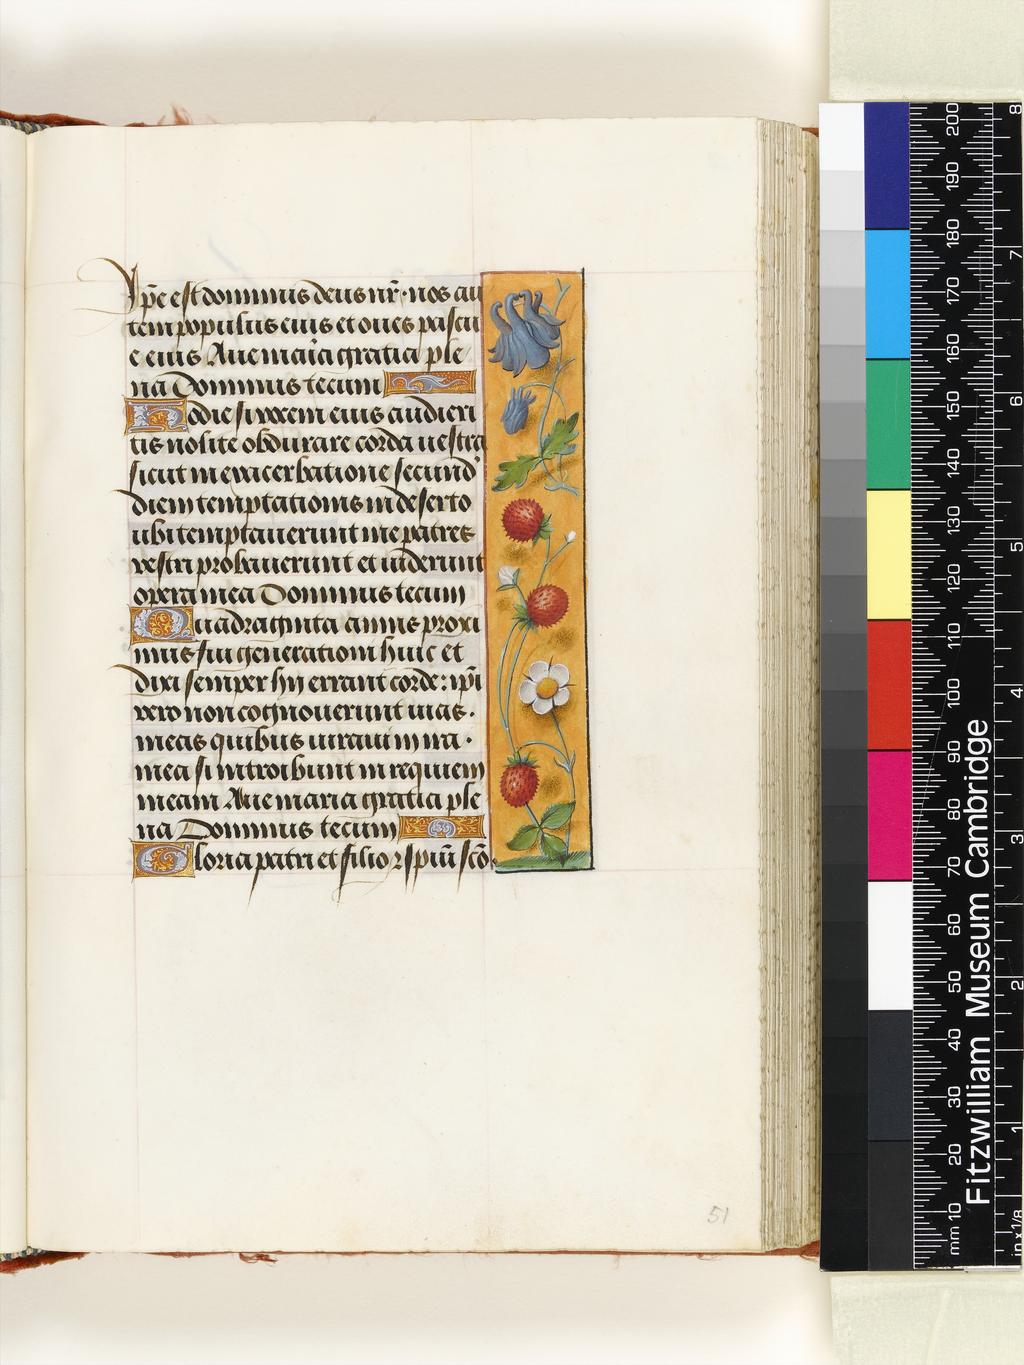 Ip̄e est dominus deus nr̄· nos au
tem populus eius et oues pascu
e eius Aue maria gratia ple
na Dominus tecum
Hodie si vocem eius audieri
tis nolite obdurare corda uestra
sicut in exacerbatione secund'
diem temptationis in deserto
ubi temptauerunt me patres
vestri probauerunt et uiderunt
opera mea Dominus tecum
Quadraginta annis proxi
mus fui generationi huic et
dixi semper hii errant corde: ip̄i
vero non cognouerunt uias·
meas quibus iuraui in ira·
mea si introibunt in requiem
meam Aue maria gratia ple
na Dominus tecum
Gloria patri et filio ⁊ spiū scō
51
Fitzwilliam Museum Cambridge
mm 10 20 30 40 50 60 70 80 90 100 110 120 130 140 150 160 170 180 190 200
in x 1/8 1 2 3 4 5 6 7 8